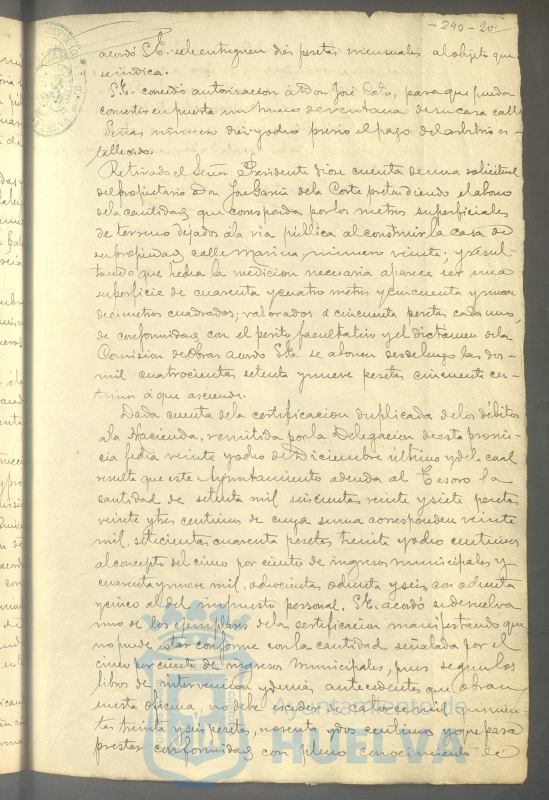 - 240 - 20
acordó S.E. se le entreguen diez pesetas mensuales al objeto que
se indica.
S.E. concedió autorizacion á Don José para que pueda
convertir en puerta un hueco de ventana de su casa calle
Señas número diez y ocho previo el pago del arbitrio es-
tablecido.
Retirado el Señor Presidente diose cuenta de una solicitud
del propietario Don José García de la Corte pretendiendo el abono
de la cantidad que corresponda por los metros superficiales
de terreno dejados á la via pública al construir la casa de
su propiedad calle Marina número veinte; y resul-
tando que hecha la medicion necesaria aparece ser una
superficie de cuarenta y cuatro metros y cincuenta y nueve
decimetros cuadrados; valorados á cincuenta pesetas cada uno
de conformidad con el perito facultativo y el dictámen de la
Comision de Obras acordó S.E. se abonen desde luego las dos
mil cuatrocientas setenta y nueve pesetas cincuenta cen-
timos á que asciende.
Dada cuenta de la certificacion duplicada de los débitos
á la Hacienda, remitida por la Delegacion de esta provin-
cia fecha veinte y ocho de Diciembre último y de la cual
resulta que este Ayuntamiento adeuda al Tesoro la
cantidad de setenta mil seiscientas veinte y siete pesetas
veinte y tres centimos de cuya suma corresponden veinte
mil setecientas cuarenta pesetas treinta y ocho centimos
al concepto del cinco por ciento de ingresos municipales y
cuarenta y nueve mil, ochocientas ochenta y seis con ochenta
y cinco al del impuesto personal. S.E. acordó se devuelva
uno de los ejemplares de la certificacion manifestando que
no puede estar conforme con la cantidad señalada por el
cinco por ciento de ingresos municipales, pues segun los
libros de intervencion y demás antecedentes que obran
en esta oficina, no debe exceder de catorce mil quinien-
tas treinta y seis pesetas, noventa y dos centimos y que para
prestar conformidad con pleno conocimiento de
Ayuntamiento de
HUELVA